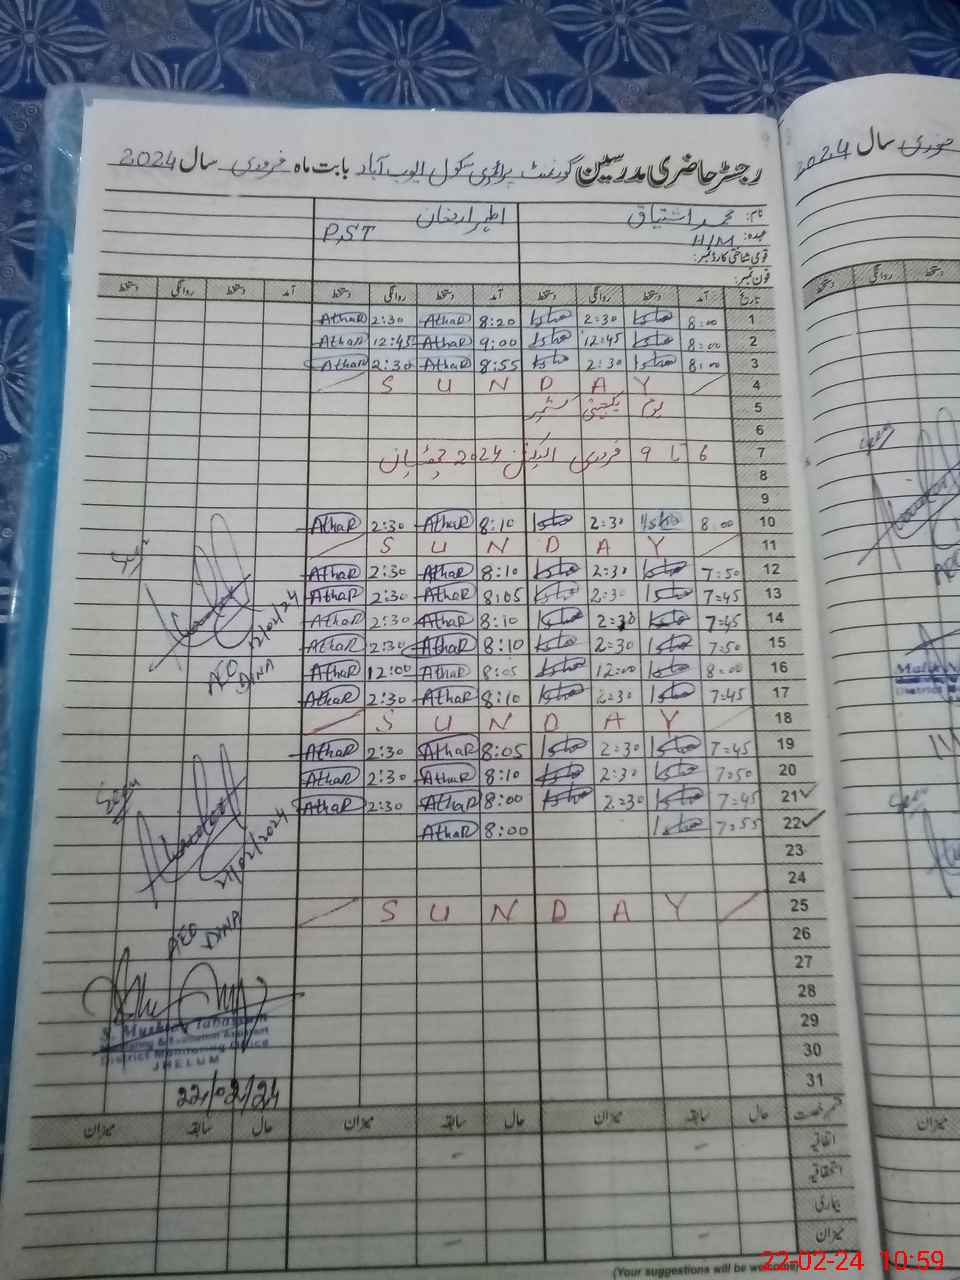 رجسٹر حاضری مدرسین گورنمنٹ پرائمری سکول ایوب آباد بابت ماہ فروری سال 2024
سال 2024
نام: محمد اشتیاق اطہر
عہدہ: H/M P.ST
قومی شناختی کارڈ نمبر:
فون نمبر:
تاریخ آمد دستخط روانگی دستخط آمد دستخط روانگی دستخط آمد دستخط روانگی دستخط
1 8:00 2:30 8:20 AthaR 2:30 AthaR
2 8:00 12:45 9:00 AthaR 12:45 AthaR
3 8:00 2:30 8:55 AthaR 2:30 AthaR
4 S U N D A Y
5 یوم یکجہتی کشمیر
6
7 6 تا 9 فروری الیکشن 2024 چھٹیاں
8
9
10 8:00 2:30 8:10 AthaR 2:30 AthaR
11 S U N D A Y
12 7:50 2:30 8:10 AthaR 2:30 AthaR
13 7:45 2:30 8:05 AthaR 2:30 AthaR
14 7:45 2:30 8:10 AthaR 2:30 AthaR
15 7:50 2:30 8:10 AthaR 2:30 AthaR
16 8:00 12:00 8:05 AthaR 12:00 AthaR
17 7:45 2:30 8:10 AthaR 2:30 AthaR
18 S U N D A Y
19 7:45 2:30 8:05 AthaR 2:30 AthaR
20 7:50 2:30 8:10 AthaR 2:30 AthaR
21 7:45 2:30 8:00 AthaR 2:30 AthaR
22 7:55 8:00 AthaR
23
24
25 S U N D A Y
26
27
28
29
30
31
Seen
12/02/24
AEO
DINA
Seen
21/02/2024
AEO DINA
District Monitoring Office
JHELUM
22/02/24
حال سابقہ میزان حال سابقہ میزان حال سابقہ میزان
اتفاقیہ
استحقاقیہ
بیماری
میزان
(Your suggestions will be welcome)
22-02-24 10:59